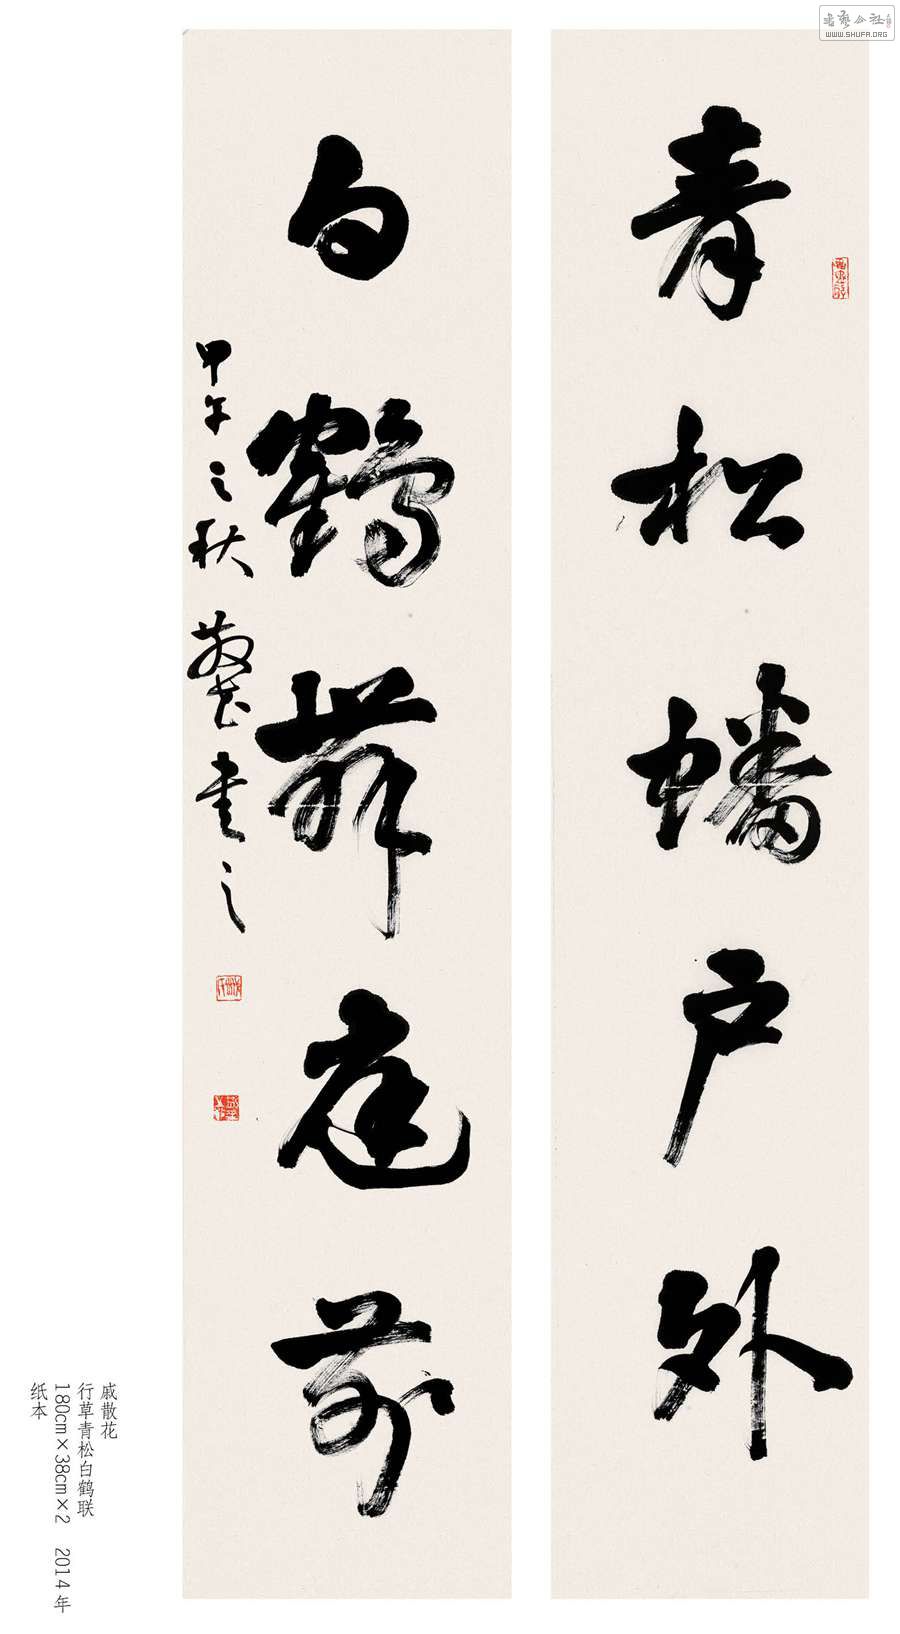 青松蟠户外
白鹤舞庭前
甲午之秋散花书之
戚散花
行草青松白鹤联
180cm×38cm×2 2014年
纸本
书艺公社
WWW.SHUFA.ORG